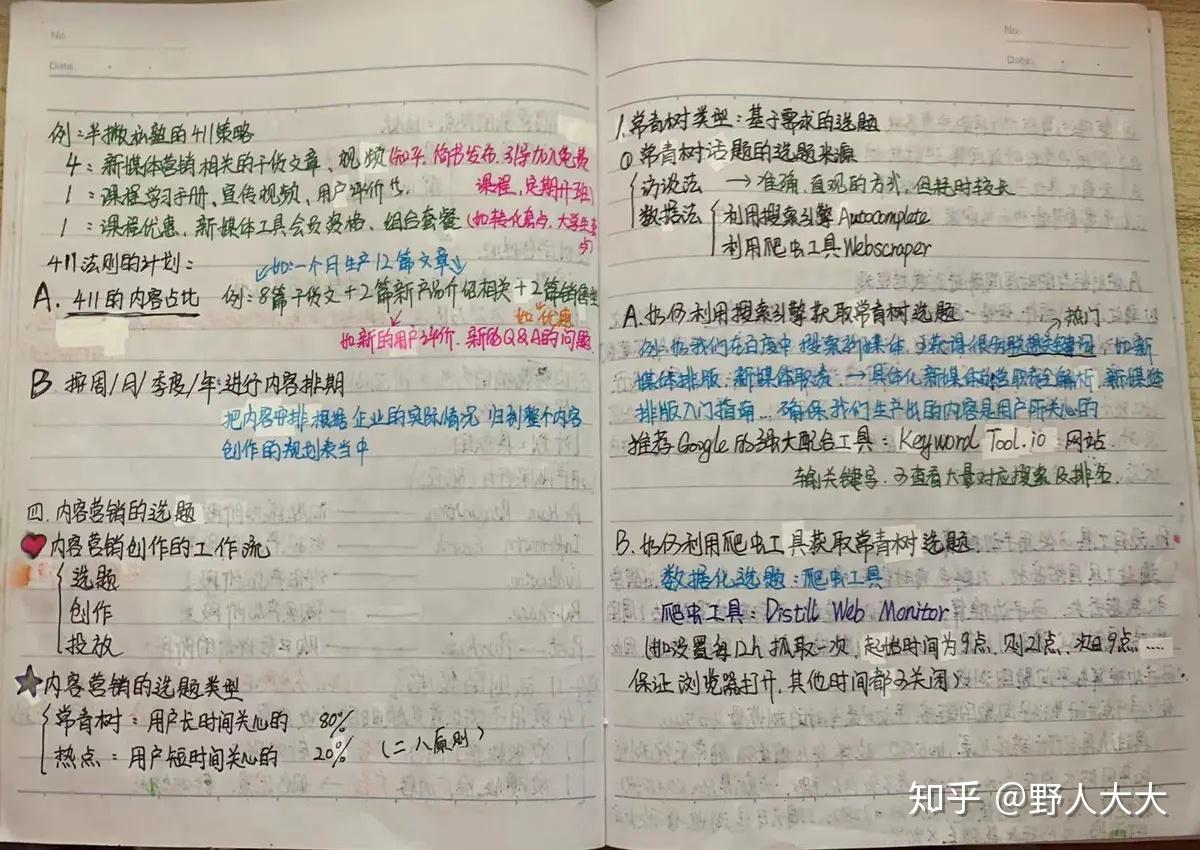 No
Date
例：半撇私塾的411策略
4：新媒体营销相关的干货文章、视频(知乎、简书发布、引导加入免费
1：课程学习手册、宣传视频、用户评价代、 课程，定期开班)
1：课程优惠、新媒体工具会员资格、组合套餐(如转化卖点、大学生卖点)
411法则的计划：
如：一个月生产12篇文章
A. 411的内容占比 例：8篇干货文+2篇新产品介绍相关+2篇销售型
如优惠
如新的用户评价、新的Q&A的问题.
B 按周/月/季度/年进行内容排期
把内容安排根据企业的实际情况 归到整个内容
创作的规划表当中
四.内容营销的选题
内容营销创作的工作流
选题
创作
投放
内容营销的选题类型
常青树：用户长时间关心的 80%
热点：用户短时间关心的 20% (二八原则)
No.
Date:
1.常青树类型：基于需求的选题
①常青树话题的选题来源
访谈法 → 准确、直观的方式，但耗时较长
数据法 利用搜索引擎Autocomplete
利用爬虫工具Webscraper
A.如何利用搜索引擎获取常青树选题 热门
例:如我们在百度中搜索新媒体,可获得很多联想关键词,如新
媒体排版、新媒体职责 → 具体化新媒体职责全解析,新媒体
排版入门指南... 确保我们生产出的内容是用户所关心的
推荐Google的强大配合工具：Keyword Tool.io 网站.
输关键字.可查看大量对应搜索及排名.
B.如何利用爬虫工具获取常青树选题.
数据化选题：爬虫工具
爬虫工具：Distill Web Monitor
(如设置每12h抓取一次，起始时间为9点，则21点、次日9点....
保证浏览器打开，其他时间都可关闭)
知乎 @野人大大